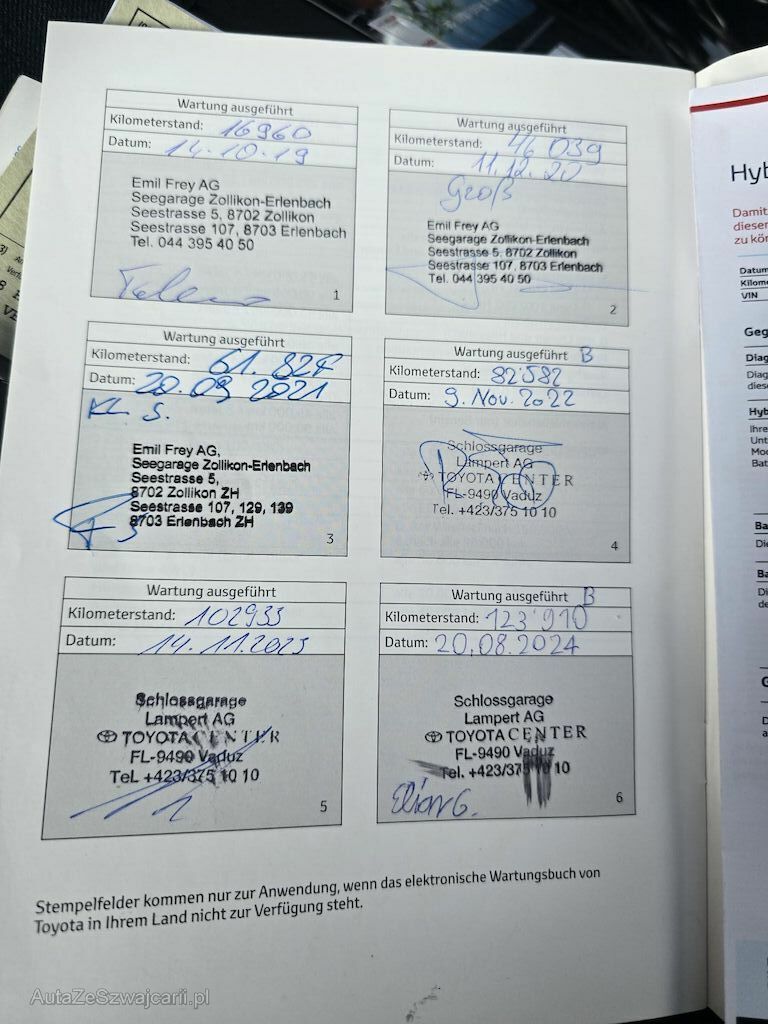 Wartung ausgeführt
Kilometerstand: 16960
Datum: 14.10.19
Emil Frey AG
Seegarage Zollikon-Erlenbach
Seestrasse 5, 8702 Zollikon
Seestrasse 107, 8703 Erlenbach
Tel. 044 395 40 50
1
Wartung ausgeführt
Kilometerstand: 46 039
Datum: 11.12.20
Groß
Emil Frey AG
Seegarage Zollikon-Erlenbach
Seestrasse 5, 8702 Zollikon
Seestrasse 107, 8703 Erlenbach
Tel. 044 395 40 50
2
Wartung ausgeführt
Kilometerstand: 61.827
Datum: 20.09.2021
Kl. S.
Emil Frey AG,
Seegarage Zollikon-Erlenbach
Seestrasse 5,
8702 Zollikon ZH
Seestrasse 107, 129, 139
8703 Erlenbach ZH
3
Wartung ausgeführt B
Kilometerstand: 82'582
Datum: 9. Nov. 2022
Schlossgarage
Lampert AG
TOYOTA CENTER
FL-9490 Vaduz
Tel. +423/375 10 10
4
Wartung ausgeführt
Kilometerstand: 102933
Datum: 14.11.2023
Schlossgarage
Lampert AG
TOYOTA CENTER
FL-9490 Vaduz
Tel. +423/375 10 10
5
Wartung ausgeführt B
Kilometerstand: 123'910
Datum: 20.08.2024
Schlossgarage
Lampert AG
TOYOTA CENTER
FL-9490 Vaduz
Tel. +423/375 10 10
6
Stempelfelder kommen nur zur Anwendung, wenn das elektronische Wartungsbuch von
Toyota in Ihrem Land nicht zur Verfügung steht.
Hyb
Damit
dieser
zu kör
Datum
Kilome
VIN
Geg
Diag
Diag
diese
Hyb
Ihre
Unt
Mod
Bat
Ba
Die
Ba
Di
de
G
D
a
AutaZeSzwajcarii.pl